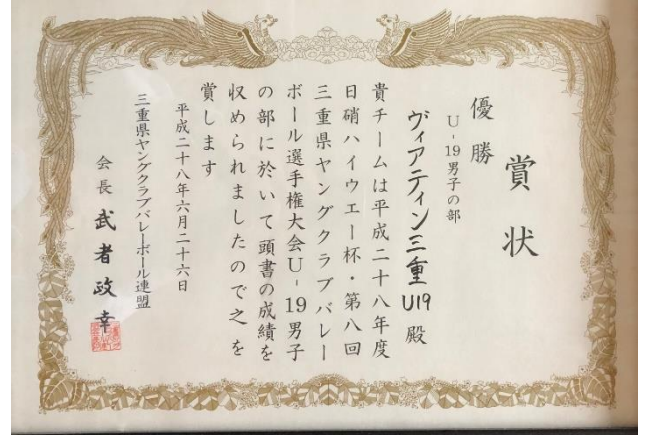 賞状
優勝
U-19男子の部
ヴィアティン三重U19 殿
貴チームは平成二十八年度
日硝ハイウエー杯・第八回
三重県ヤングクラブバレー
ボール選手権大会U-19男子
の部に於いて頭書の成績を
収められましたので之を
賞します
平成二十八年六月二十六日
三重県ヤングクラブバレーボール連盟
会長 武者政幸